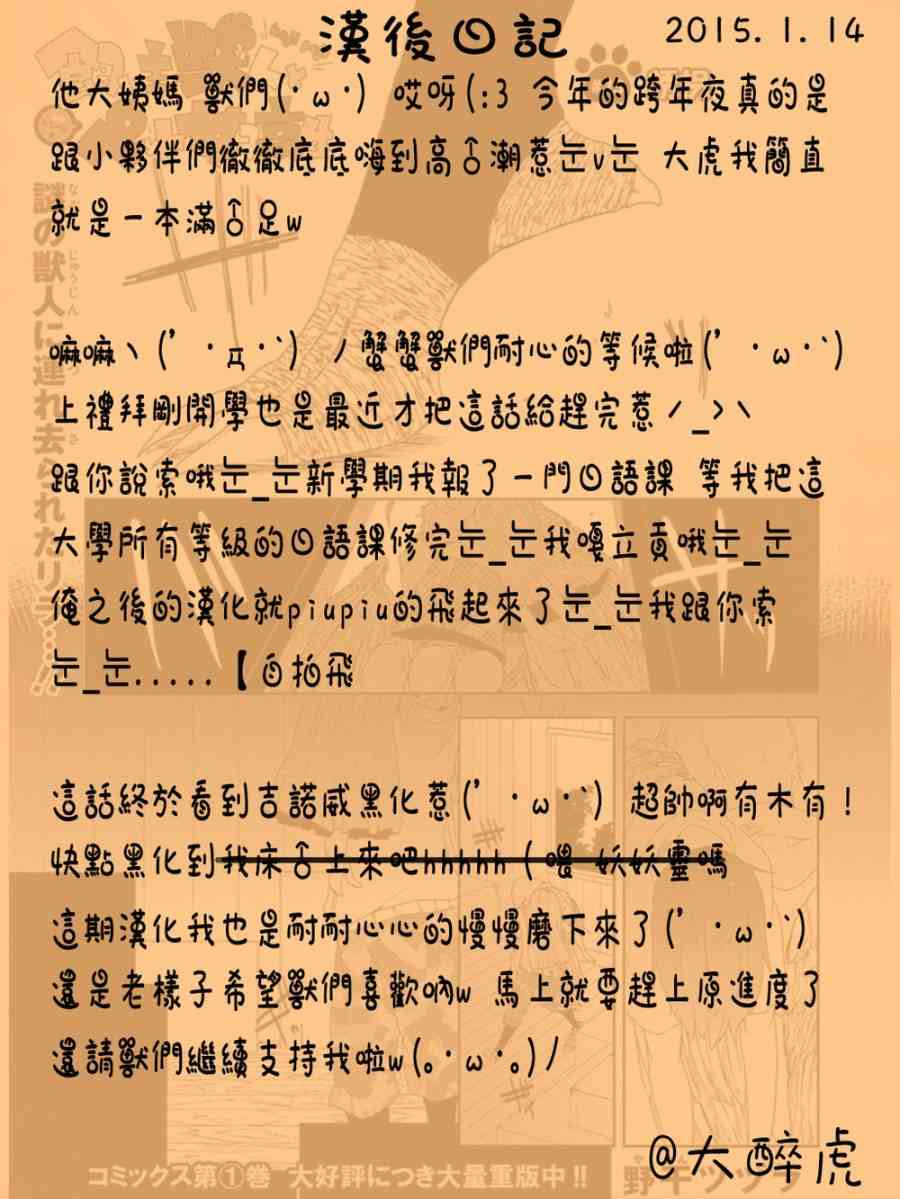 漢後日記
2015.1.14
他大姨媽 獸們(･ω･) 哎呀(:3 今年的跨年夜真的是
跟小夥伴們徹徹底底嗨到高↑潮惹눈v눈 大虎我簡直
就是一本滿↑足w
嘛嘛ヽ(’･д･‵) ノ蟹蟹獸們耐心的等候啦(’･ω･‵)
上禮拜剛開學也是最近才把這話給趕完惹ㄟ_>ヽ
跟你說索哦눈_눈新學期我報了一門日語課 等我把這
大學所有等級的日語課修完눈_눈我嘎立貢哦눈_눈
俺之後的漢化就piupiu的飛起來了눈_눈我跟你索
눈_눈.....【自拍飛
這話終於看到吉諾威黑化惹(’･ω･‵) 超帥啊有木有！
快點黑化到我床↑上來吧hhhhh（喂 妖妖靈嗎
這期漢化我也是耐耐心心的慢慢磨下來了(’･ω･‵)
還是老樣子希望獸們喜歡吶w 馬上就要趕上原進度了
還請獸們繼續支持我啦w(｡･ω･｡)ﾉ
@大醉虎
謎の獣人に連れ去られたリラ……!!
じゅうじん
コミックス第①巻 大好評につき大量重版中!!